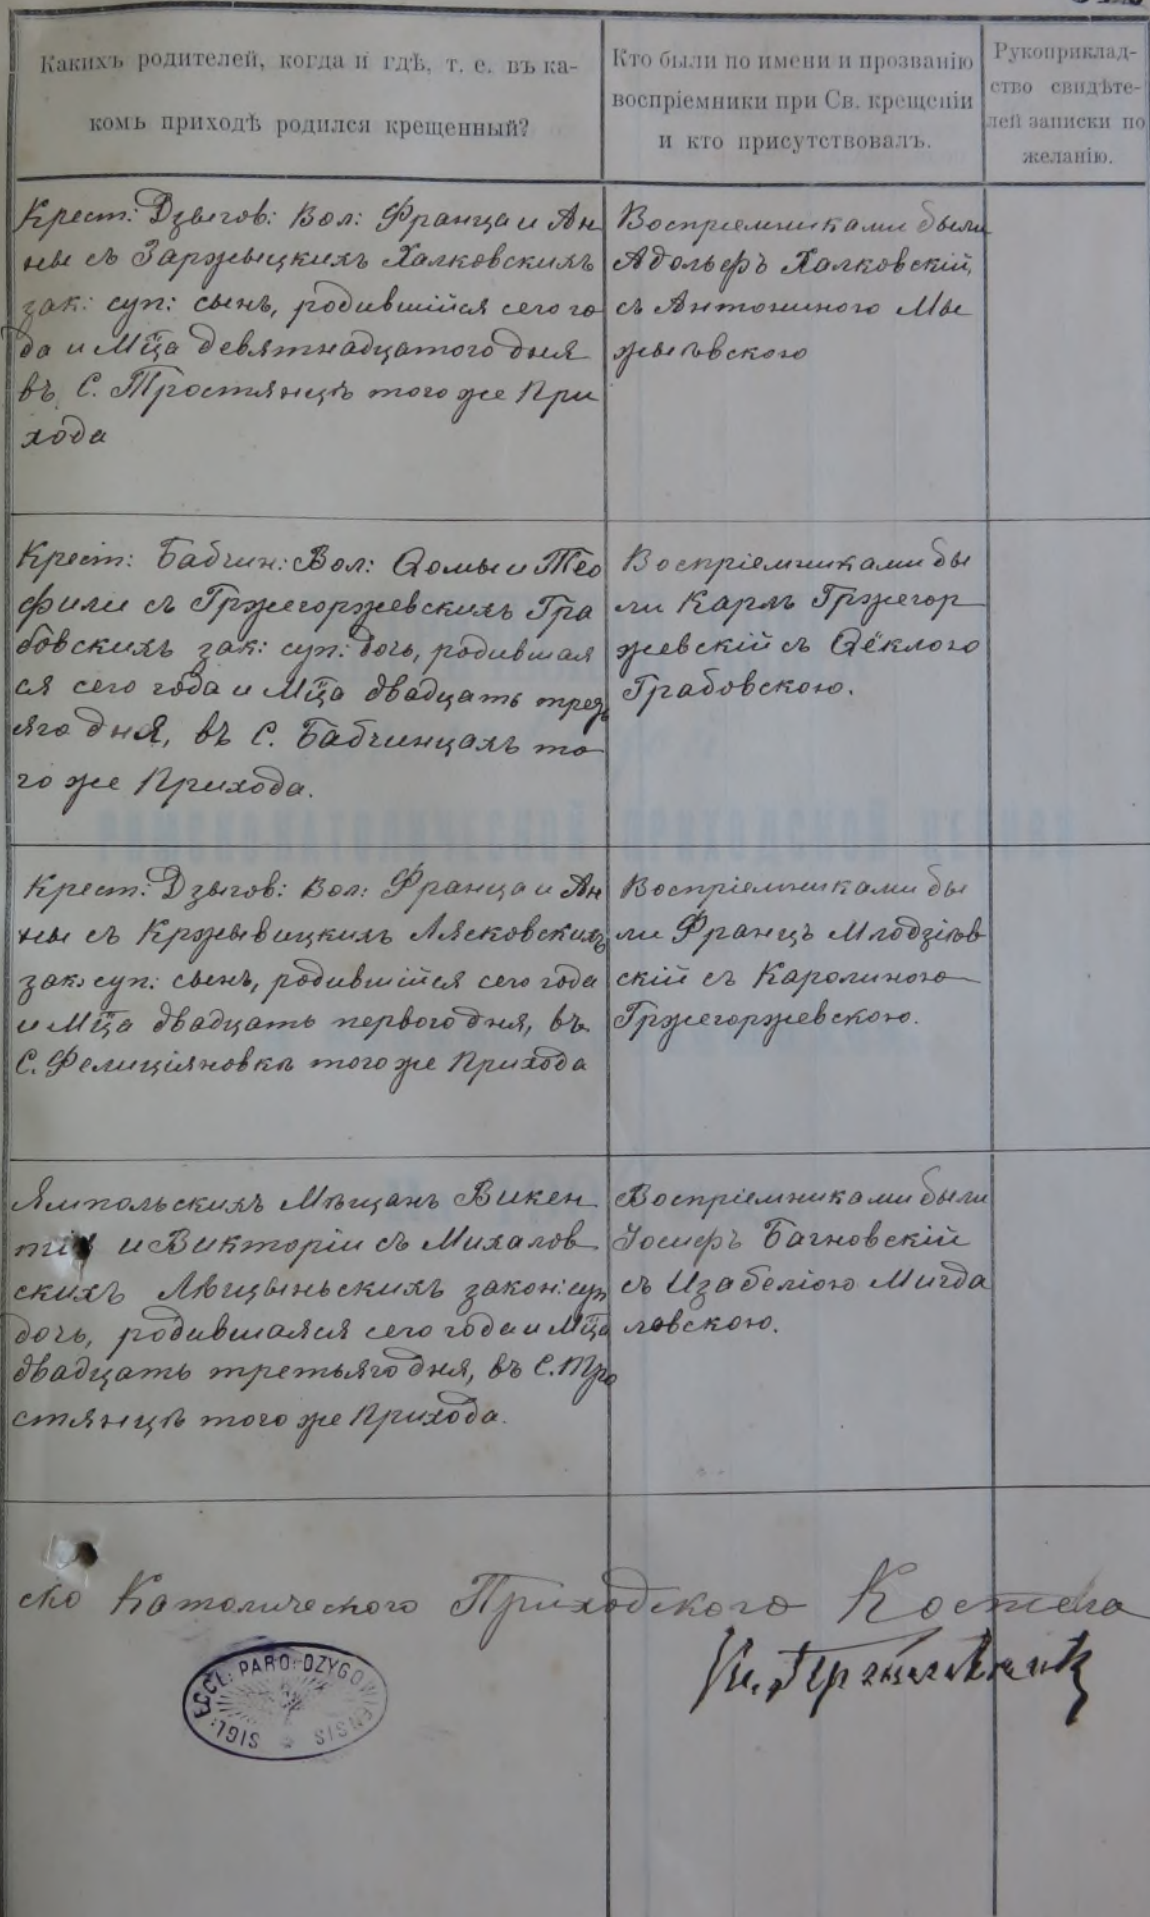 Какихъ родителей, когда и гдѣ, т. е. въ ка-
комъ приходѣ родился крещенный?
Кто были по имени и прозванію
воспріемники при Св. крещеніи
и кто присутствовалъ.
Рукоприклад-
ство свидѣте-
лей записки по
желанію.
Крест: Дзыгов: Вол: Франца и Ан
ны съ Заржыцкихъ Халковскихъ
зак: суп: сынъ, родившійся сего го
да и Мца девятнадцатого дня
въ С. Тростянцѣ того же При
хода
Воспріемниками были
Адольфъ Халковскій,
съ Антониною Мы
Крест: Бабчин: Вол: Ѳомы и Тео
фили съ Гржегоржевскихъ Гра
бовскихъ зак: суп: дочь, родившая
ся сего года и Мца двадцать треть
яго дня, въ С. Бабчинцахъ то
го же Прихода.
Воспріемниками бы
ли Карлъ Гржегор
жевскій съ Ѳёклою
Грабовскою.
Крест: Дзыгов: Вол: Франца и Ан
ны съ Кржывицкихъ Лясковскихъ
зак: суп: сынъ, родившійся сего года
и Мца двадцать первого дня, въ
С. Фелиціяновкѣ того же Прихода
Воспріемниками бы
ли Францъ Млодзіов
скій съ Каролиною
Гржегоржевскою.
Ямпольскихъ Мѣщанъ Викен
тія и Викторіи съ Михалов
скихъ Лѣщыньскихъ закон: суп
дочь, родившаяся сего года и Мца
двадцать третьяго дня, въ С. Тро
стянцѣ того же Прихода.
Воспріемниками были
Іосифъ Багновскій
съ Изабеліою Мигда
ловскою.
ско Католического Приходского Костела
SIGL: ECCL: PARO: DZYGOWIENSIS